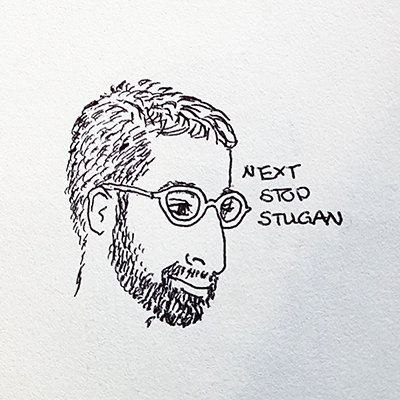 NEXT
STOP
STUGAN